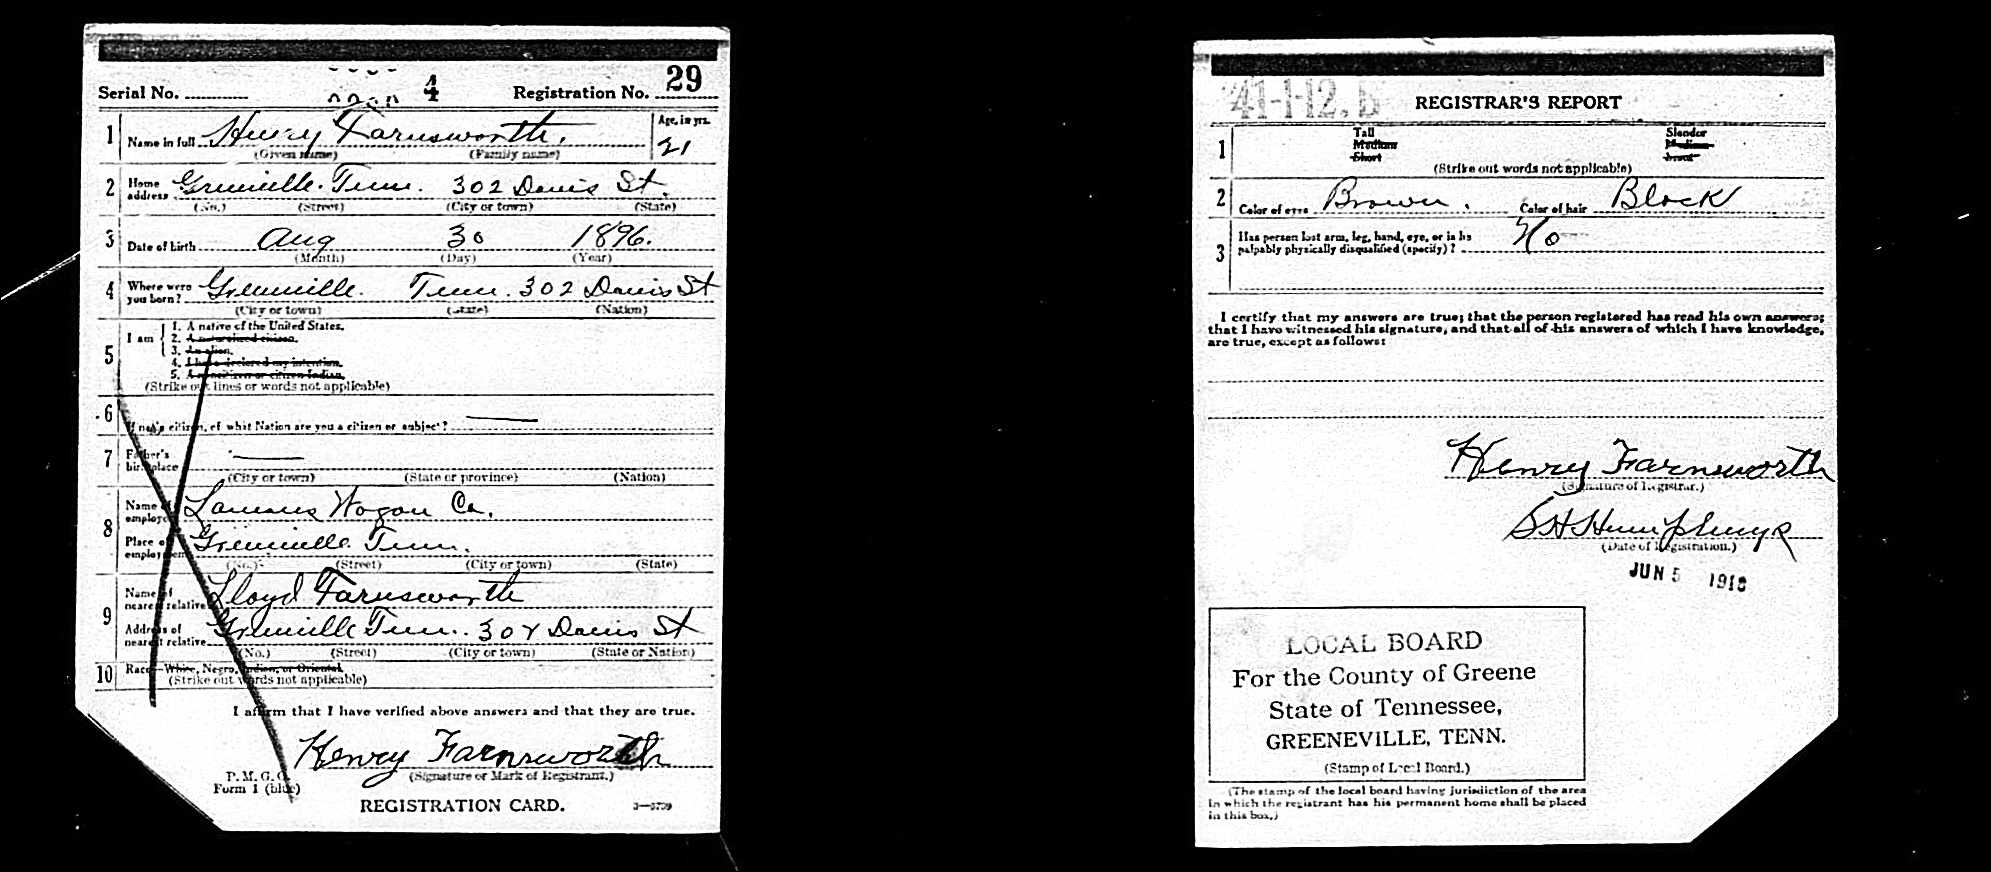 Serial No. 4 Registration No. 29
1 Name in full Henry Farnsworth. Age, in yrs. 21
(Given name) (Family name)
2 Home address Greenville. Tenn. 302 Davis St.
(No.) (Street) (City or town) (State)
3 Date of birth Aug 30 1896.
(Month) (Day) (Year)
4 Where were you born? Greenville. Tenn. 302 Davis St
(City or town) (State) (Nation)
5 I am
1. A native of the United States.
2. A naturalized citizen.
3. An alien.
4. I have declared my intention.
5. A noncitizen or citizen Indian.
(Strike out lines or words not applicable)
6 If not a citizen, of what Nation are you a citizen or subject?
7 Father's birthplace
(City or town) (State or province) (Nation)
8 Name of employer Wagon Co.
Place of employment Greenville Tenn.
(No.) (Street) (City or town) (State)
9 Name of nearest relative Lloyd Farnsworth
Address of nearest relative Greenville Tenn. 302 Davis St
(No.) (Street) (City or town) (State or Nation)
10 Race—White, Negro, Indian, or Oriental.
(Strike out words not applicable)
I affirm that I have verified above answers and that they are true.
Henry Farnsworth
(Signature or Mark of Registrant.)
P. M. G. O.
Form 1 (blue)
REGISTRATION CARD. 3—5739
41-1-12. B REGISTRAR'S REPORT
1 Tall Slender
Medium Medium
Short Stout
(Strike out words not applicable)
2 Color of eyes Brown. Color of hair Black
3 Has person lost arm, leg, hand, eye, or is he
palpably physically disqualified (specify)? No
I certify that my answers are true; that the person registered has read his own answers;
that I have witnessed his signature, and that all of his answers of which I have knowledge,
are true, except as follows:
Henry Farnsworth
(Signature of Registrar.)
S H Humphreys
(Date of Registration.)
JUN 5 1918
LOCAL BOARD
For the County of Greene
State of Tennessee,
GREENEVILLE, TENN.
(Stamp of Local Board.)
(The stamp of the local board having jurisdiction of the area
in which the registrant has his permanent home shall be placed
in this box.)